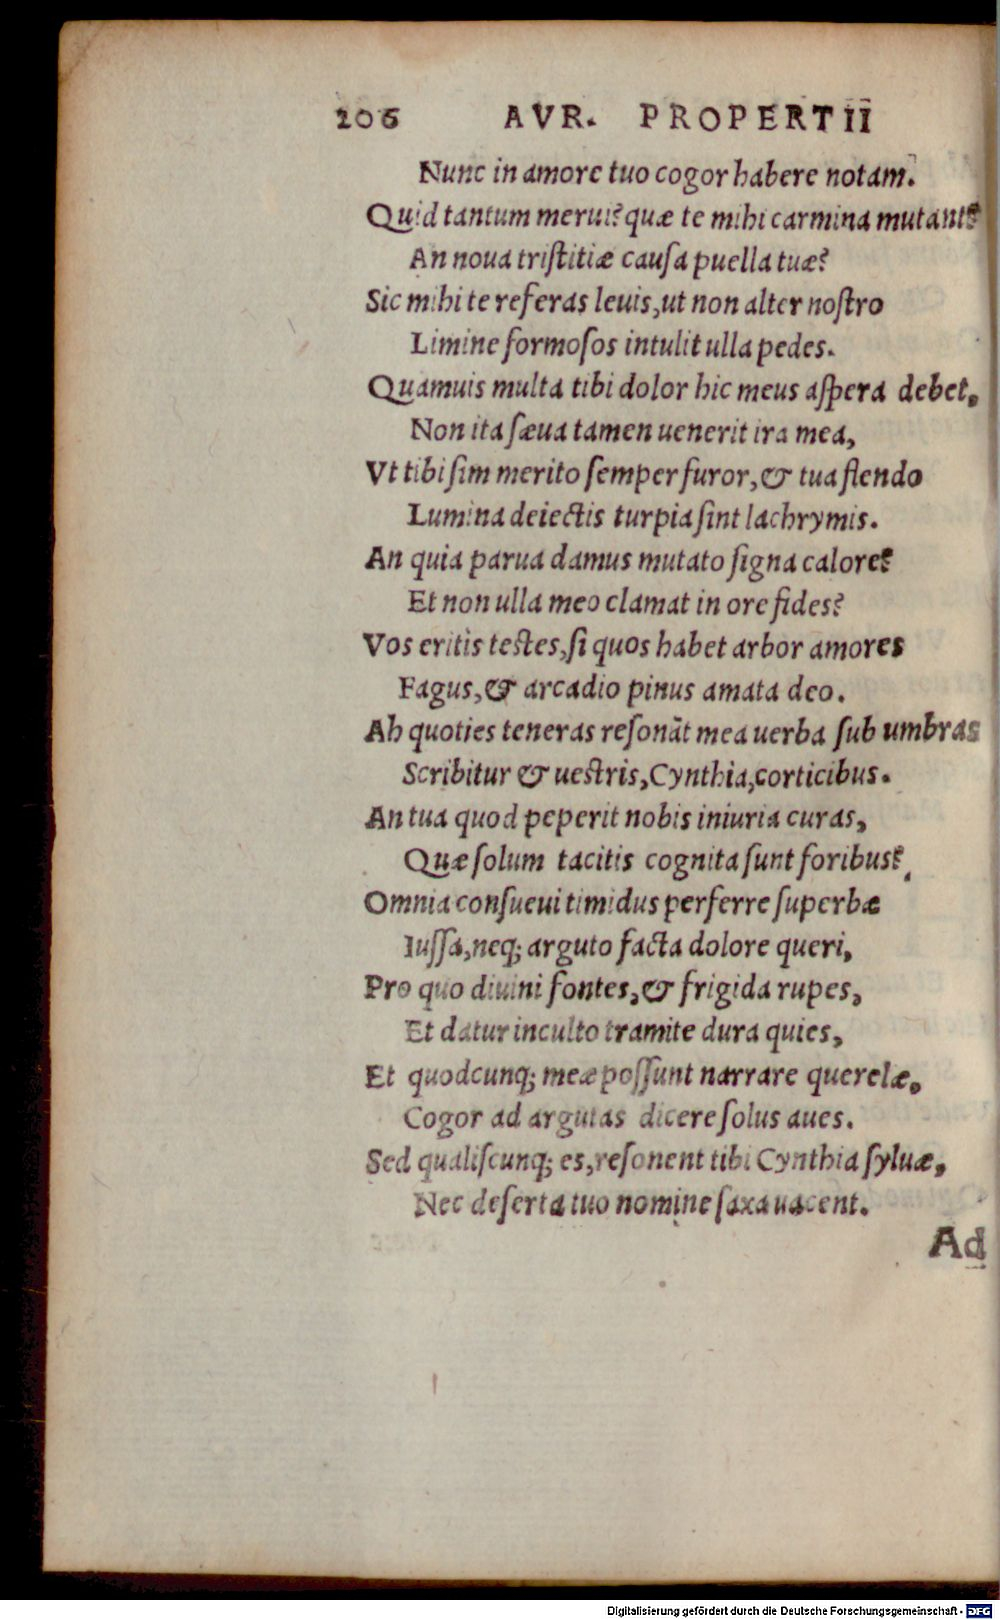 206 AVR. PROPERTII
Nunc in amore tuo cogor habere notam.
Quid tantum merui? quæ te mihi carmina mutant?
An noua tristitiæ causa puella tuæ?
Sic mihi te referas leuis, ut non alter nostro
Limine formosos intulit ulla pedes.
Quamuis multa tibi dolor hic meus aspera debet,
Non ita sæua tamen uenerit ira mea,
Vt tibi sim merito semper furor, & tua flendo
Lumina deiectis turpia sint lachrymis.
An quia parua damus mutato signa calore?
Et non ulla meo clamat in ore fides?
Vos eritis testes, si quos habet arbor amores
Fagus, & arcadio pinus amata deo.
Ah quoties teneras resonāt mea uerba sub umbras
Scribitur & uestris, Cynthia, corticibus.
An tua quod peperit nobis iniuria curas,
Quæ solum tacitis cognita sunt foribus?
Omnia consueui timidus perferre superbæ
Iussa, neq; arguto facta dolore queri,
Pro quo diuini fontes, & frigida rupes,
Et datur inculto tramite dura quies,
Et quodcunq; meæ possunt narrare querelæ,
Cogor ad argutas dicere solus aues.
Sed qualiscunq; es, resonent tibi Cynthia syluæ,
Nec deserta tuo nomine saxa uacent.
Ad
Digitalisierung gefördert durch die Deutsche Forschungsgemeinschaft - DFG